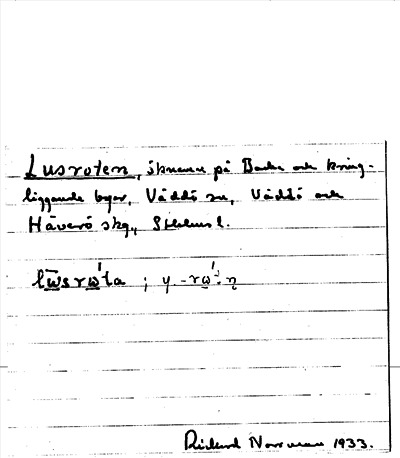 Lusroten, öknamn på Backa och kring-
liggande byar, Väddö sn, Väddö och
Häverö skg, Sthlms l.
lω̄srώ̣ta ; y. -rώ̣:
Rickard Norrman 1933.